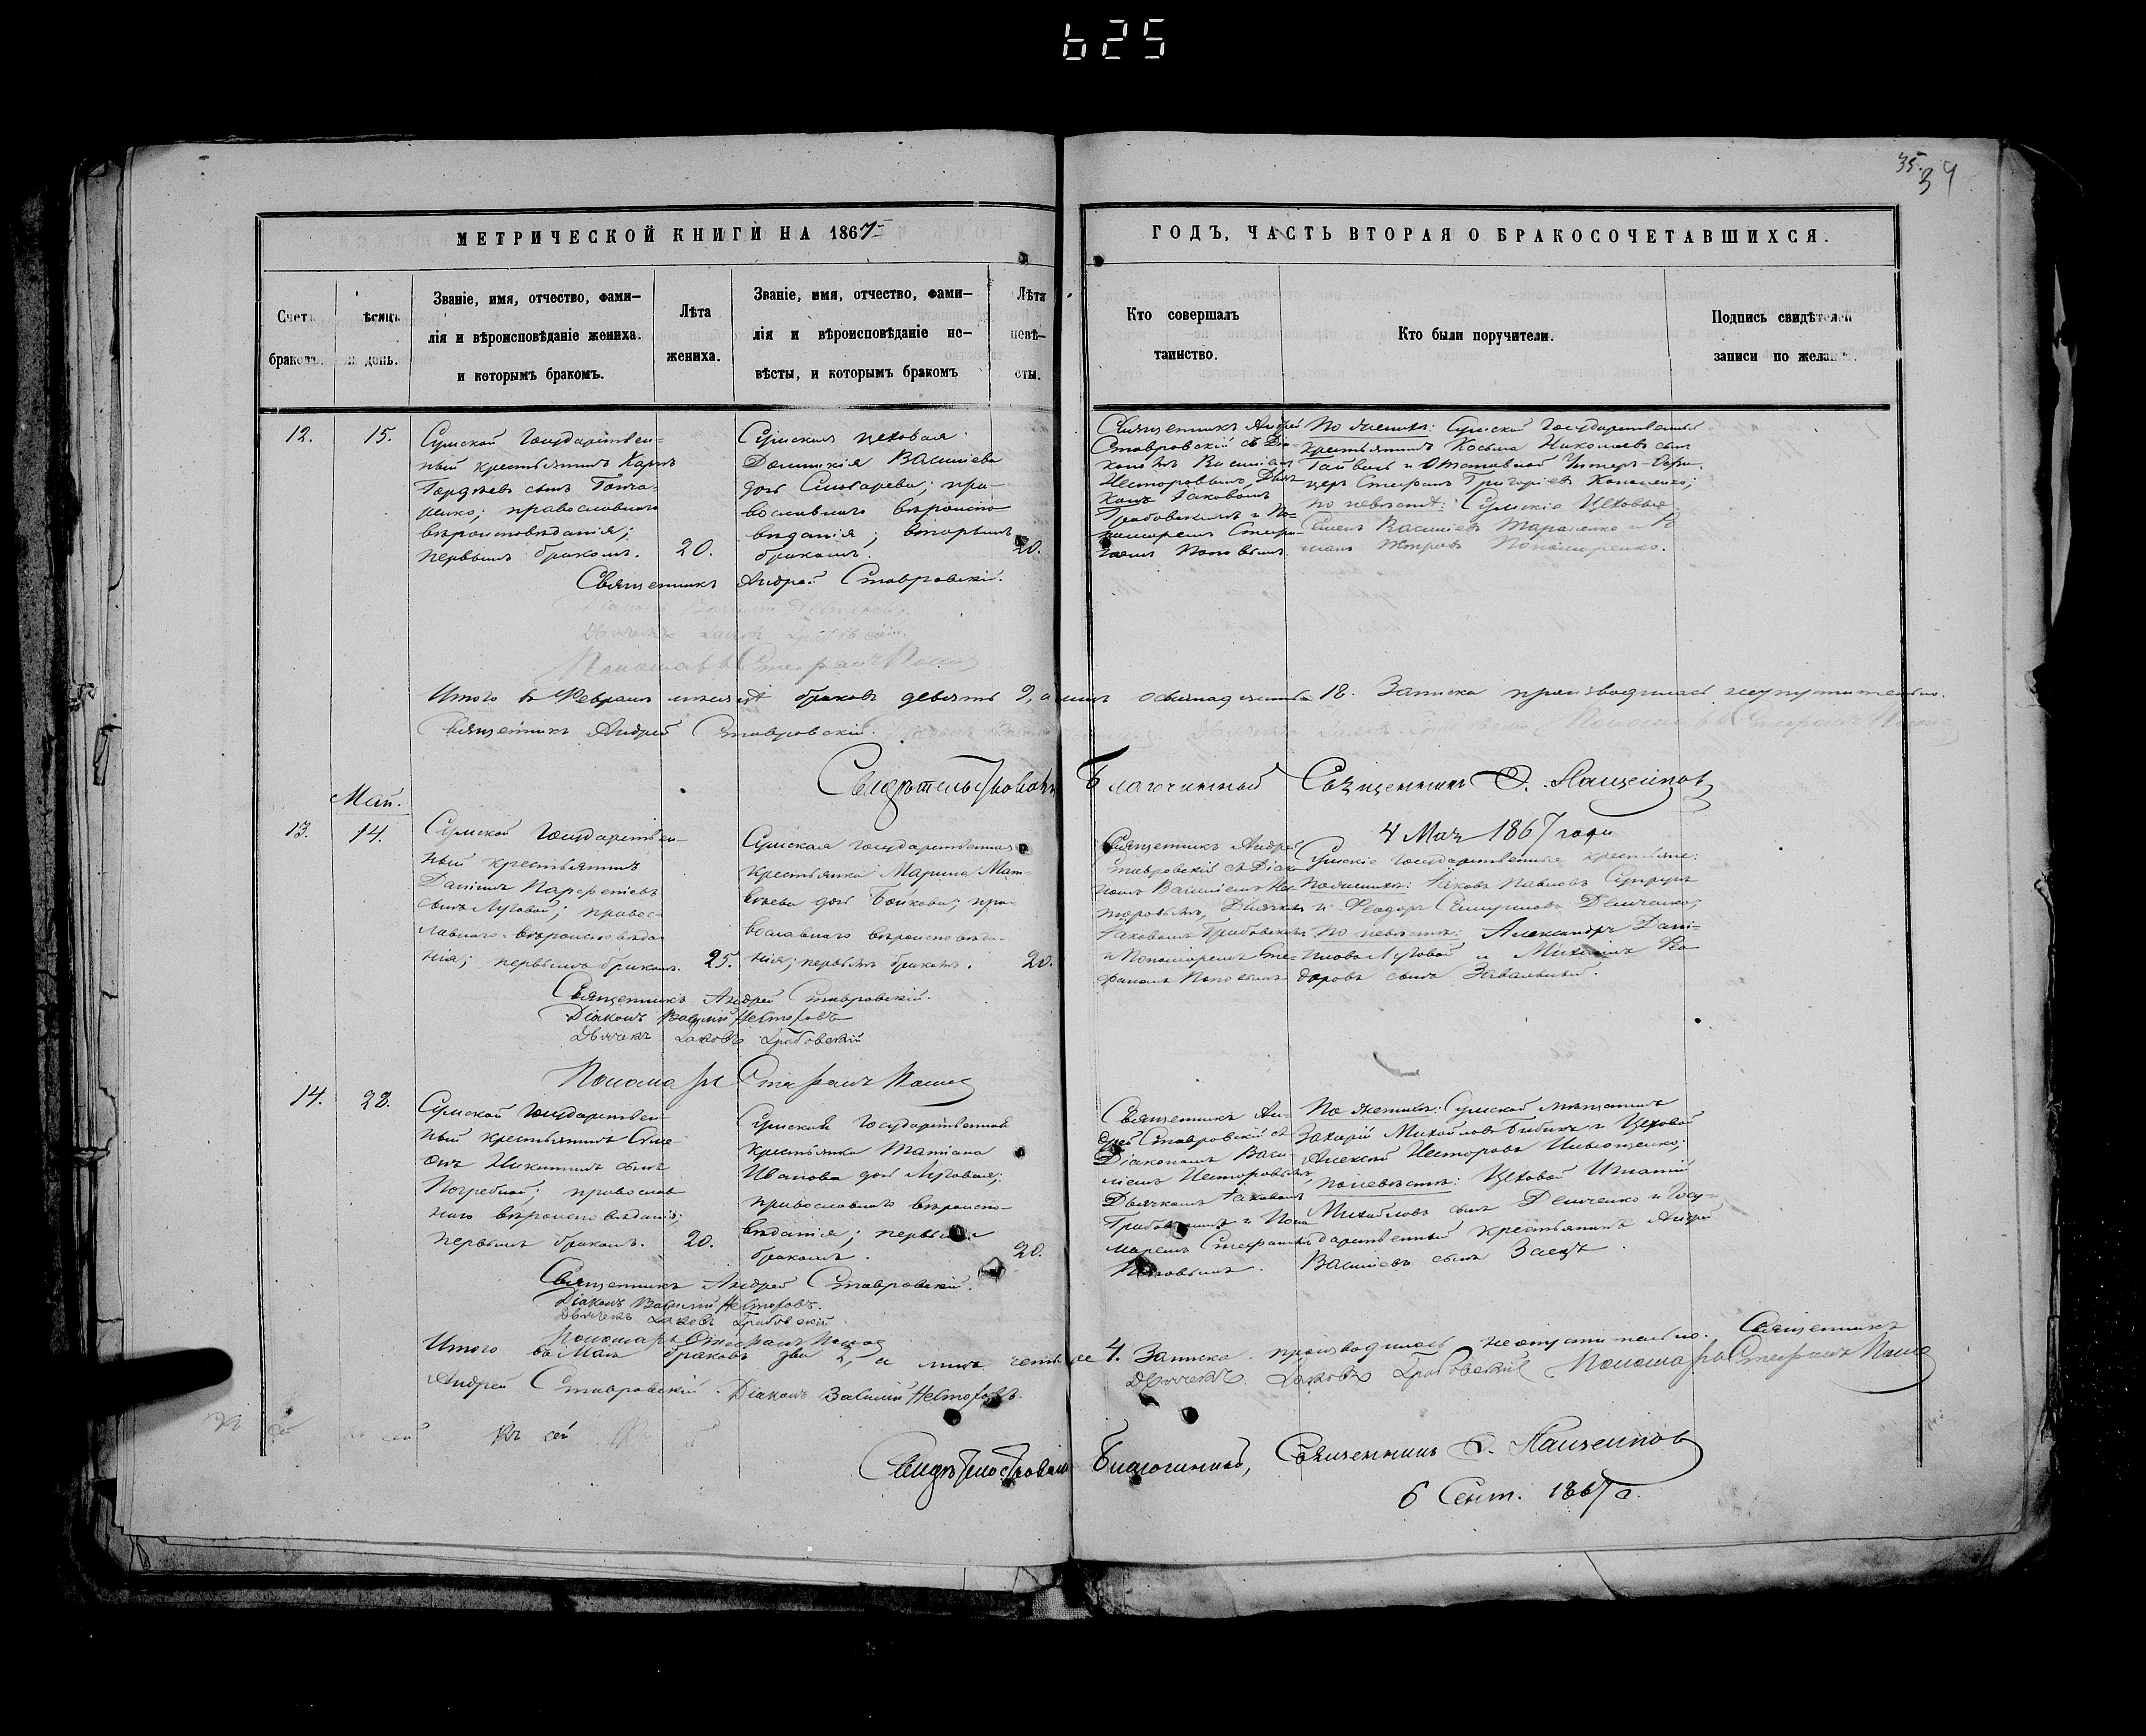 625
35. 34
МЕТРИЧЕСКОЙ КНИГИ НА 1867
ГОДЪ, ЧАСТЬ ВТОРАЯ О БРАКОСОЧЕТАВШИХСЯ.
Счетъ
браковъ.
мѣсяцъ
и день.
Званіе, имя, отчество, фами-
лія и вѣроисповѣданіе жениха.
и которымъ бракомъ.
Лѣта
жениха.
Званіе, имя, отчество, фами-
лія и вѣроисповѣданіе не-
вѣсты, и которымъ бракомъ
Лѣта
невѣ-
сты.
Кто совершалъ
таинство.
Кто были поручители.
Подпись свидѣтелей
записи по желан
12.
15.
Сумской Государствен-
ный крестьянинъ Карпъ
Гордѣевъ сынъ Гонча-
ренко; православнаго
вѣроисповѣданія;
первымъ бракомъ.
20.
Сумская цеховая
Домникія Васильева
дочь Слюсарева; пра-
вославнаго вѣроиспо
вѣданія; вторымъ
бракомъ.
20.
Священникъ Андрей
Ставровскій съ Діа-
кономъ Василіем
Несторовымъ, Дьяч
комъ Іаковомъ
Грабовскимъ и По-
номаремъ Стефа-
номъ Поповымъ
По женихѣ: Сумской Государственный
крестьянинъ Косьма Николаевъ сынъ
и Отставной Унтеръ-Офи-
церъ Стефанъ Григоріевъ Кононенко;
по невѣстѣ: Сумскіе Цеховые
Семенъ Васильевъ Тараненко и
Петровъ Пономаренко.
Священникъ Андрей Ставровскій.
Діаконъ Василій Несторовъ
Дьячекъ Іаковъ Грабовскій.
Пономарь Стефанъ Попов
Итого въ Февралѣ мѣсяцѣ браковъ девять 9, а лицъ осьмнадцать 18. Записка производилась неупустительно.
Священникъ Андрей Ставровскій. Дьячекъ Іаковъ Грабовскій Пономарь Стефанъ Попов
Свидѣтельствовалъ Благочинный Священникъ
4 Мая 1867 года
Май.
13.
14.
Сумской Государствен-
ный крестьянинъ
Даніилъ Парфеніевъ
сынъ Луговой; правос-
лавнаго вѣроисповѣда-
нія; первымъ бракомъ.
25.
Сумская государственная
крестьянка Марина Мат-
вѣева дочь Бойкова; пра-
вославнаго вѣроисповѣда-
нія; первымъ бракомъ.
20.
Священникъ Андрей
Ставровскій съ Діако
номъ Василіемъ Не-
сторовымъ, Дьячкомъ
Іаковомъ Грабовскимъ
и Пономаремъ Сте-
фаномъ Поповымъ
Сумскіе государственные крестьяне:
По женихѣ: Іаковъ Павловъ Супрунъ
и Феодоръ Демченко;
по невѣстѣ: Александръ Дани-
иловъ Луговой и Михаилъ Ѳео
доровъ сынъ Завальный.
Священникъ Андрей Ставровскій.
Діаконъ Василій Несторовъ
Дьячекъ Іаковъ Грабовскій
Пономарь Стефанъ Попов
14.
22.
Сумской Государствен-
ный крестьянинъ Сѵме-
онъ Никитинъ сынъ
Погребной; православ
наго вѣроисповѣданія;
первымъ бракомъ.
20.
Сумская Государственная
крестьянка Татіана
Иванова дочь Луговая;
православнаго вѣроиспо-
вѣданія; первымъ
бракомъ.
20.
Священникъ Ан-
дрей Ставровскій съ
Діакономъ Васи-
ліемъ Несторовымъ,
Дьячкомъ Іаковомъ
Грабовскимъ и Поно
маремъ Стефаномъ
Поповымъ.
По женихѣ: Сумской мѣщанинъ
Захарій Михайловъ Бибикъ и Цеховой
Алексѣй Несторовъ Ильющенко;
по невѣстѣ: Цеховой Игнатій
Михайловъ сынъ Демченко и Госу-
дарственный крестьянинъ Андрей
Васильевъ сынъ Заецъ.
Священникъ Андрей Ставровскій.
Діаконъ Василій Несторовъ.
Дьячекъ Іаковъ Грабовскій
Пономарь Стефанъ Попов
Итого въ Маѣ браковъ два 2, а лицъ четыре 4. Записка производилась неопустительно. Священникъ
Андрей Ставровскій. Діаконъ Василій Несторовъ. Дьячекъ Іаковъ Грабовскій Пономарь Стефанъ Попов
Къ сей
Свидѣтельствовалъ Благочинный, Священникъ
6 Сент. 1867 г.